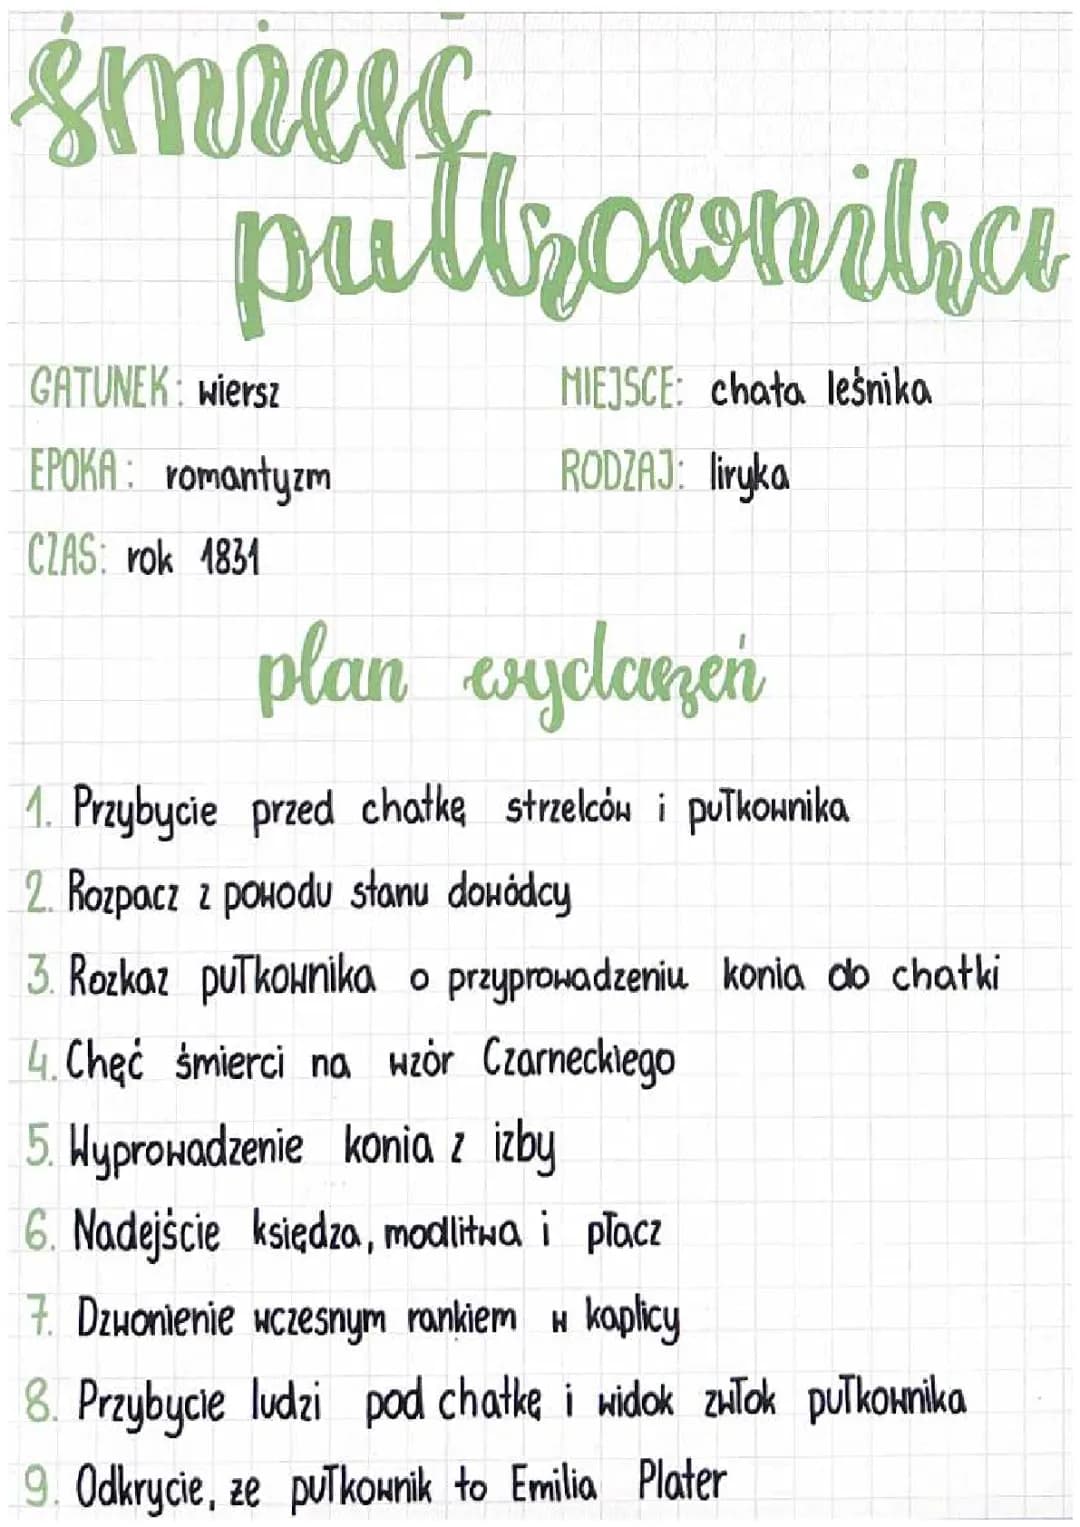 śmierć
pułkownika
GATUNEK: wiersz
MIEJSCE: chata leśnika
EPOKA: romantyzm
RODZAJ: liryka
CZAS: rok 1831
plan wydarzeń
1. Przybycie przed chatkę strzelców i pułkownika
2. Rozpacz z powodu stanu dowódcy
3. Rozkaz pułkownika o przyprowadzeniu konia do chatki
4. Chęć śmierci na wzór Czarneckiego
5. Wyprowadzenie konia z izby
6. Nadejście księdza, modlitwa i płacz
7. Dzwonienie wczesnym rankiem w kaplicy
8. Przybycie ludzi pod chatkę i widok zwłok pułkownika
9. Odkrycie, że pułkownik to Emilia Plater